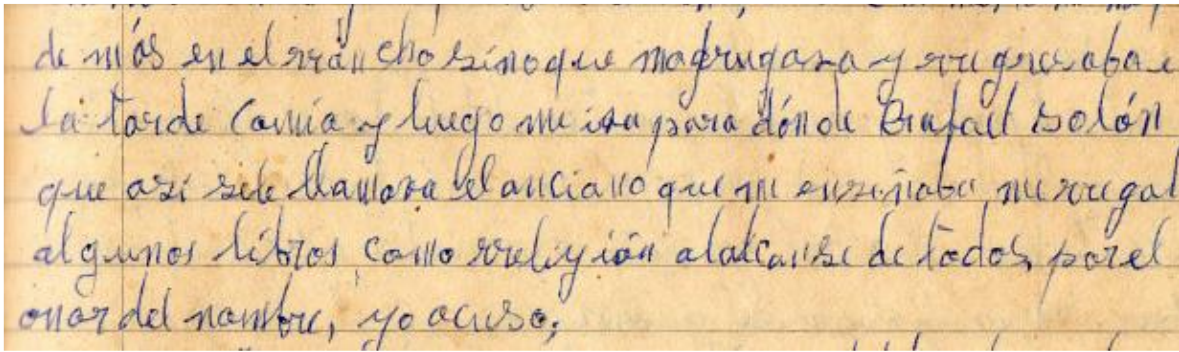 de más en el rrancho sinoque madrugava y rregresaba e
la tarde Comia y luego me iva para dónde Rrafail Solón
que asi sele llamava el anciano que mi enseñaba, me rregal
algunos libros, como rreligión alalcanse de todos, por el
onor del nombre, yo acuso,